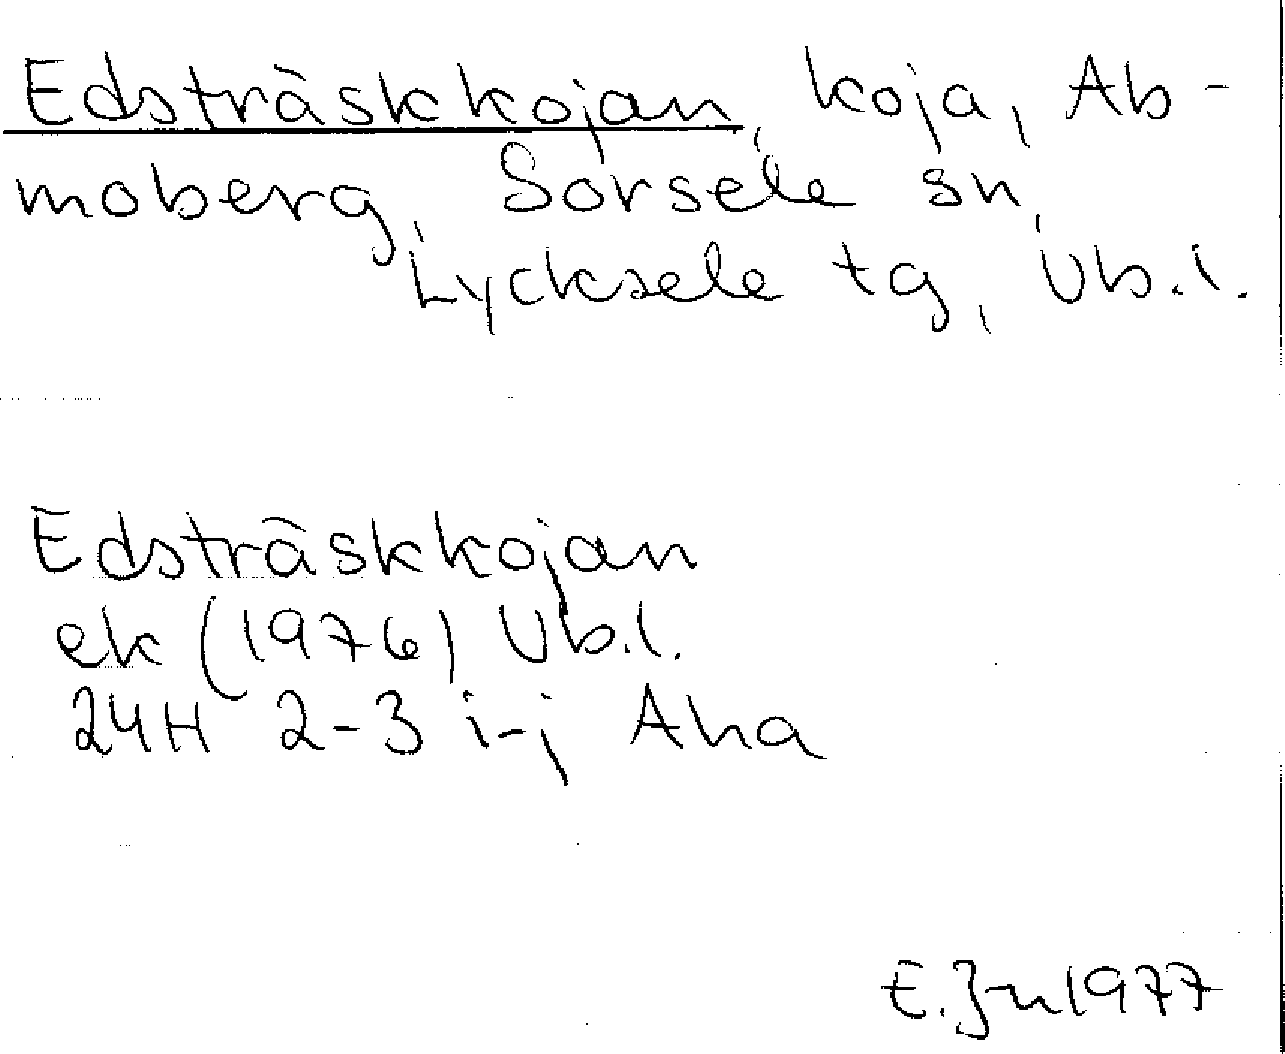 Edsträskkojan, koja, Ab-
moberg, Sorsele sn,
Lycksele tg, Vb.l.
Edsträskkojan
ek (1976) Vb.l.
24H 2-3 i-j Aha
E.Jn 1977